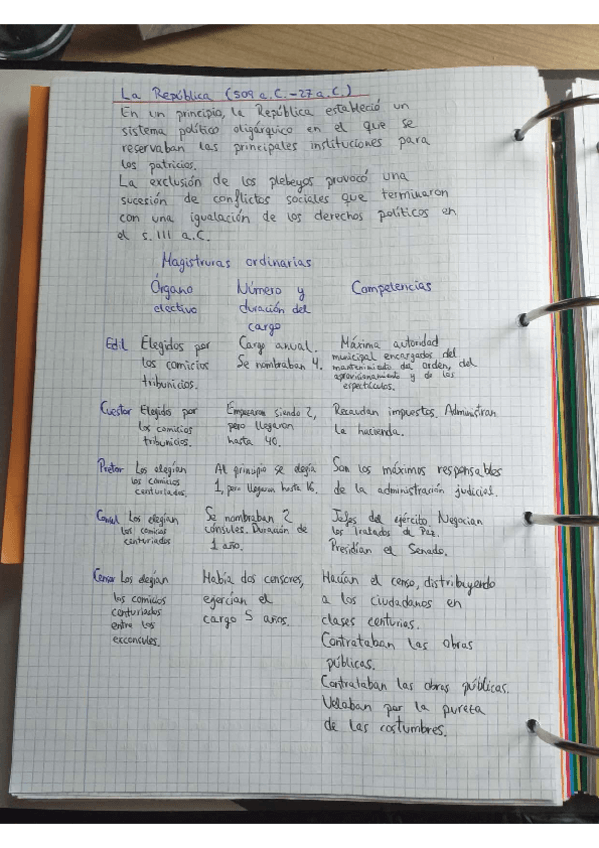 La República (509 a.C.-27 a.C.)
En un principio, la República estableció un
sistema político oligárquico en el que se
reservaban las principales instituciones para
los patricios.
La exclusión de los plebeyos provocó una
sucesión de conflictos sociales que terminaron
con una igualación de los derechos políticos en
el s. III a.C.
Magistruras ordinarias
Órgano
electivo
Número y
duración del
cargo
Competencias
Edil
Elegidos por
los comicios
tribunicios.
Cargo anual.
Se nombraban 4.
Máxima autoridad
municipal encargados del
mantenimiento del orden, del
aprovisionamiento y de los
espectáculos.
Cuestor
Elegidos por
los comicios
tribunicios.
Empezaron siendo 2,
pero llegaron
hasta 40.
Recaudan impuestos. Administran
la hacienda.
Pretor
Los elegían
los comicios
centuriados.
Al principio se elegía
1, pero llegaron hasta 16.
Son los máximos responsables
de la administración judicial.
Consul
Los elegían
los comicios
centuriados
Se nombraban 2
cónsules. Duración de
1 año.
Jefes del ejército. Negocian
los tratados de Paz.
Presidían el Senado.
Censor
Los elegían
los comicios
centuriados
entre los
exconsules.
Había dos censores,
ejercían el
cargo 5 años.
Hacían el censo, distribuyendo
a los ciudadanos en
clases centurias.
Contrataban las obras
públicas.
Contrataban las obras públicas.
Velaban por la pureza
de las costumbres.